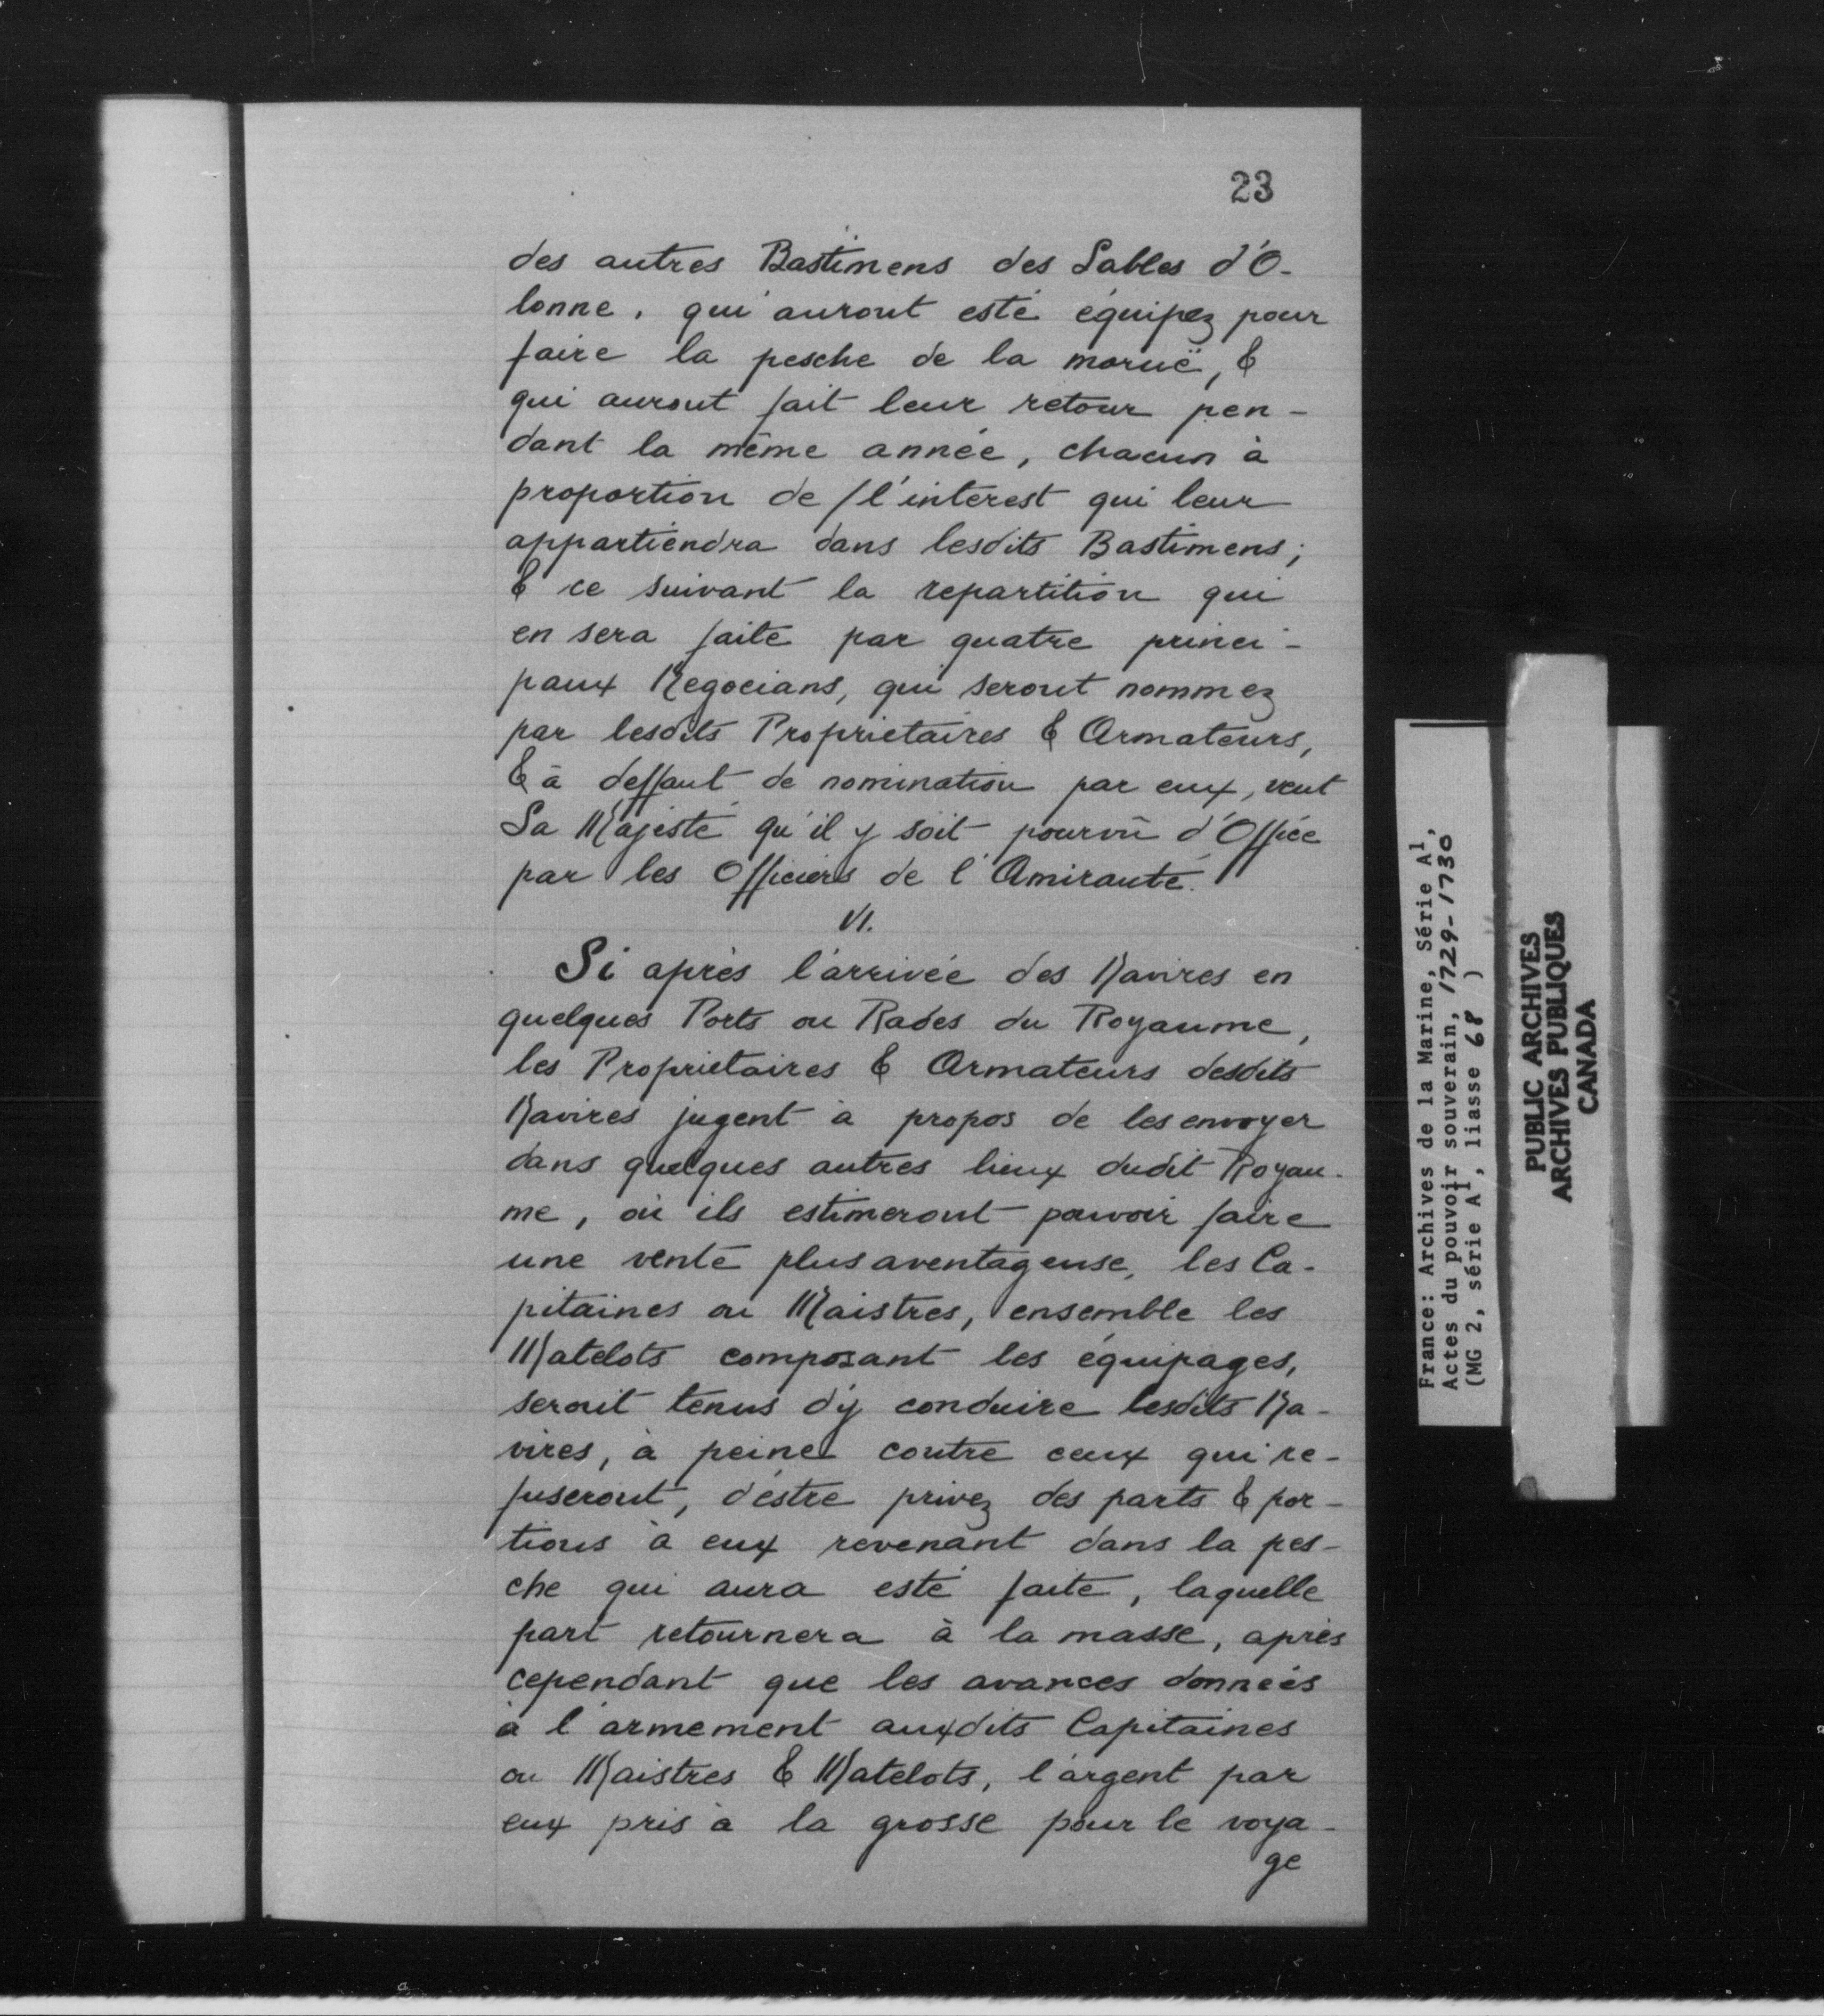 23
des autres Bastimens des Sables d'O-
lonne, qui auront esté équipez pour
faire la pesche de la moruë, &
qui auront fait leur retour pen-
dant la même année, chacun à
proportion de l'interest qui leur
appartiendra dans lesdits Bastimens;
& ce suivant la repartition qui
en sera faite par quatre princi-
paux Negocians, qui seront nommez
par lesdits Proprietaires & Armateurs,
& à deffaut de nomination par eux, veut
Sa Majesté qu'il y soit pourvû d'Office
par les Officiers de l'Amirauté.
VI.
Si après l'arrivée des Navires en
quelques Ports ou Rades du Royaume,
les Proprietaires & Armateurs desdits
Navires jugent à propos de les envoyer
dans quelques autres lieux dudit Royau-
me, où ils estimeront pouvoir faire
une vente plus aventageuse, les Ca-
pitaines ou Maistres, ensemble les
Matelots composant les équipages,
seront tenus d'y conduire lesdits Na-
vires, à peine contre ceux qui re-
fuseront, d'estre privez des parts & por-
tions à eux revenant dans la pes-
che qui aura esté faite, laquelle
part retournera à la masse, après
cependant que les avances données
à l'armement auxdits Capitaines
ou Maistres & Matelots, l'argent par
eux pris à la grosse pour le voya-
ge
France: Archives de la Marine, Série A1,
Actes du pouvoir souverain, 1729-1730
(MG 2, série A1, liasse 68 )
PUBLIC ARCHIVES
ARCHIVES PUBLIQUES
CANADA